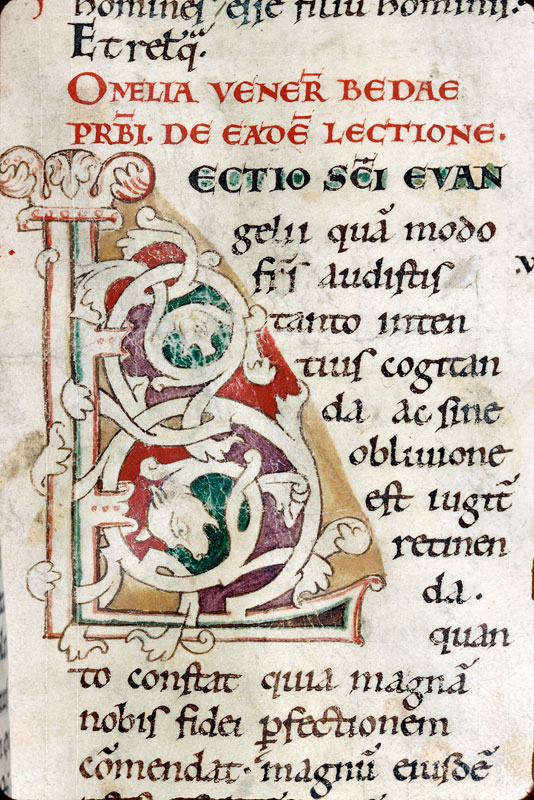 hominẽ, esse filiũ hominis.
Et reliq̃.
OMELIA VENER̃ BEDAE
PRB̃I. DE EADẼ LECTIONE.
LECTIO SC̃I EVAN
gelii quã modo
fr̃s audistis
tanto inten
tius cogitan
da ac sine
obliuione
est iugit̃
retinen
da.
quan
to constat quia magnã
nobis fidei ꝑfectionem
cõmendat. magnũ eiusdẽ